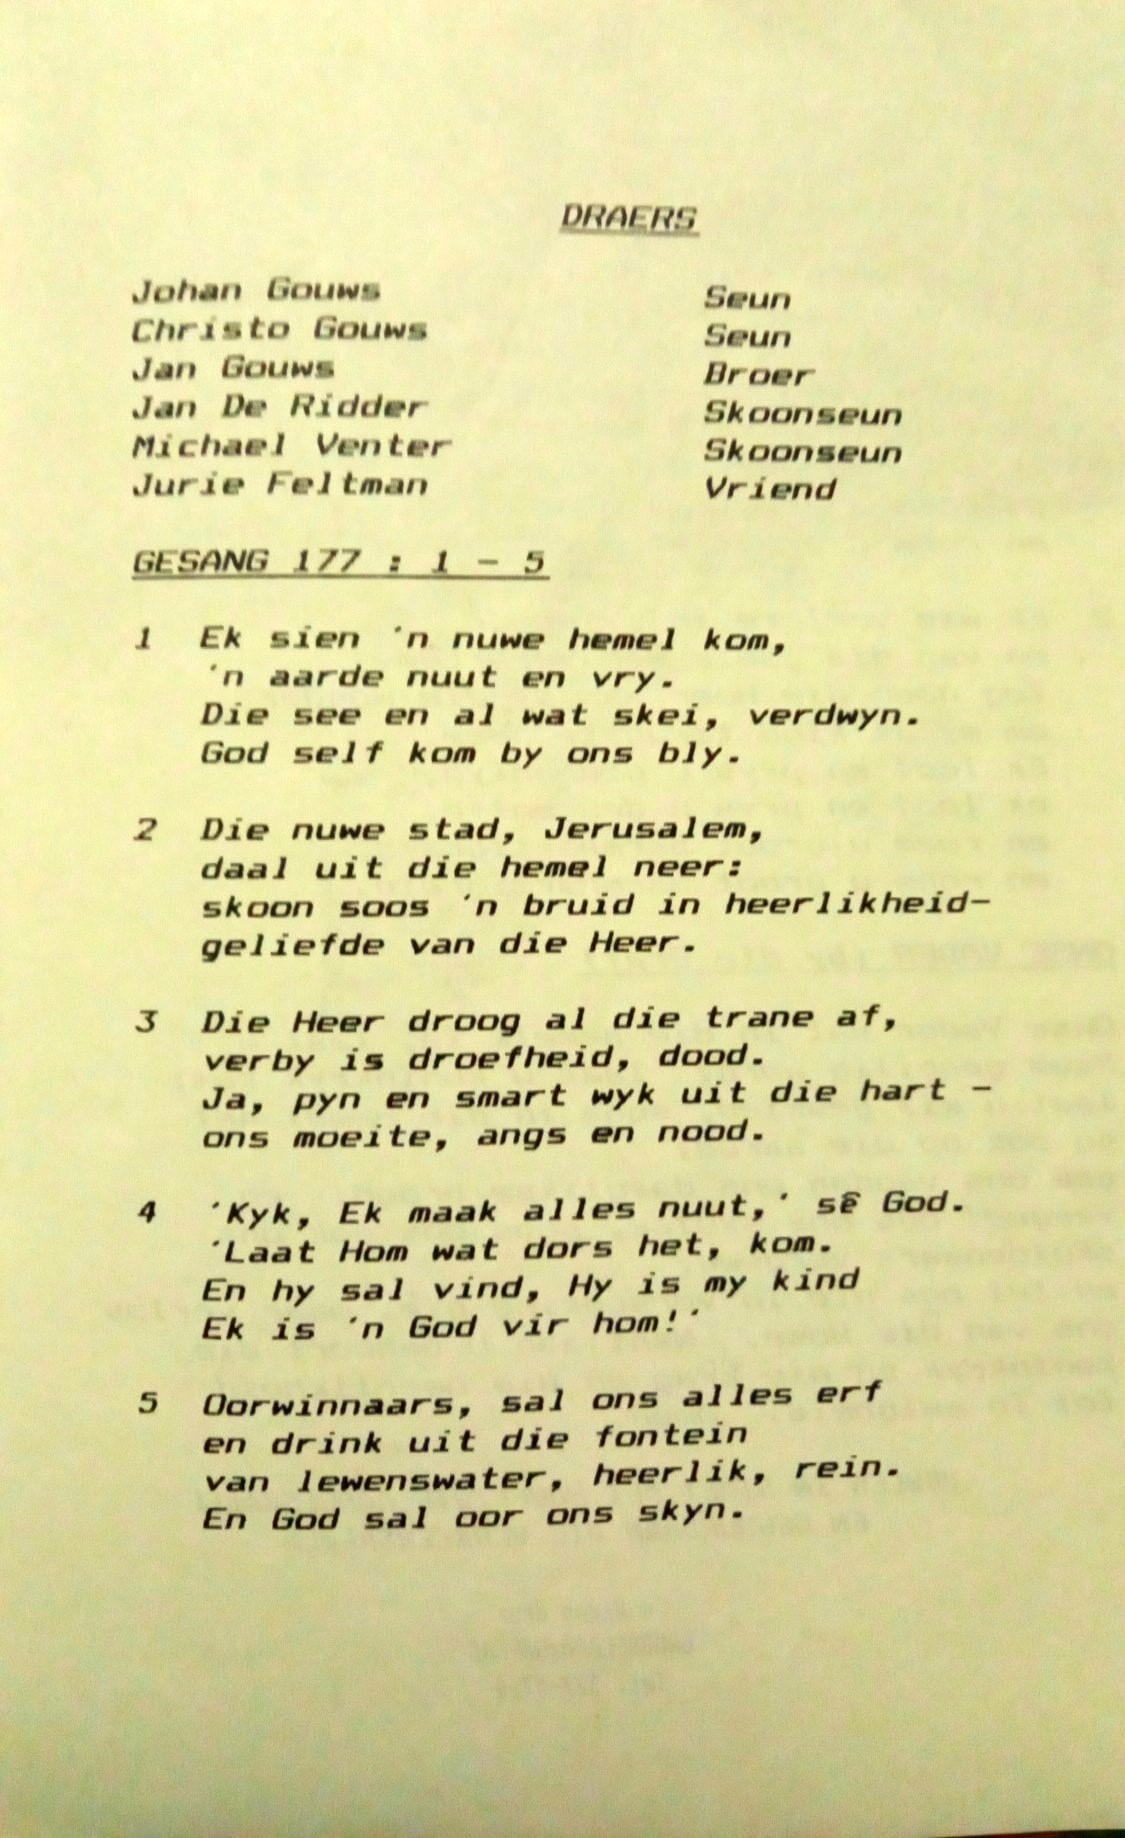 DRAERS
Johan Gouws Seun
Christo Gouws Seun
Jan Gouws Broer
Jan De Ridder Skoonseun
Michael Venter Skoonseun
Jurie Feltman Vriend
GESANG 177 : 1 - 5
1 Ek sien 'n nuwe hemel kom,
'n aarde nuut en vry.
Die see en al wat skei, verdwyn.
God self kom by ons bly.
2 Die nuwe stad, Jerusalem,
daal uit die hemel neer:
skoon soos 'n bruid in heerlikheid-
geliefde van die Heer.
3 Die Heer droog al die trane af,
verby is droefheid, dood.
Ja, pyn en smart wyk uit die hart -
ons moeite, angs en nood.
4 'Kyk, Ek maak alles nuut,' sê God.
'Laat Hom wat dors het, kom.
En hy sal vind, Hy is my kind
Ek is 'n God vir hom!'
5 Oorwinnaars, sal ons alles erf
en drink uit die fontein
van lewenswater, heerlik, rein.
En God sal oor ons skyn.